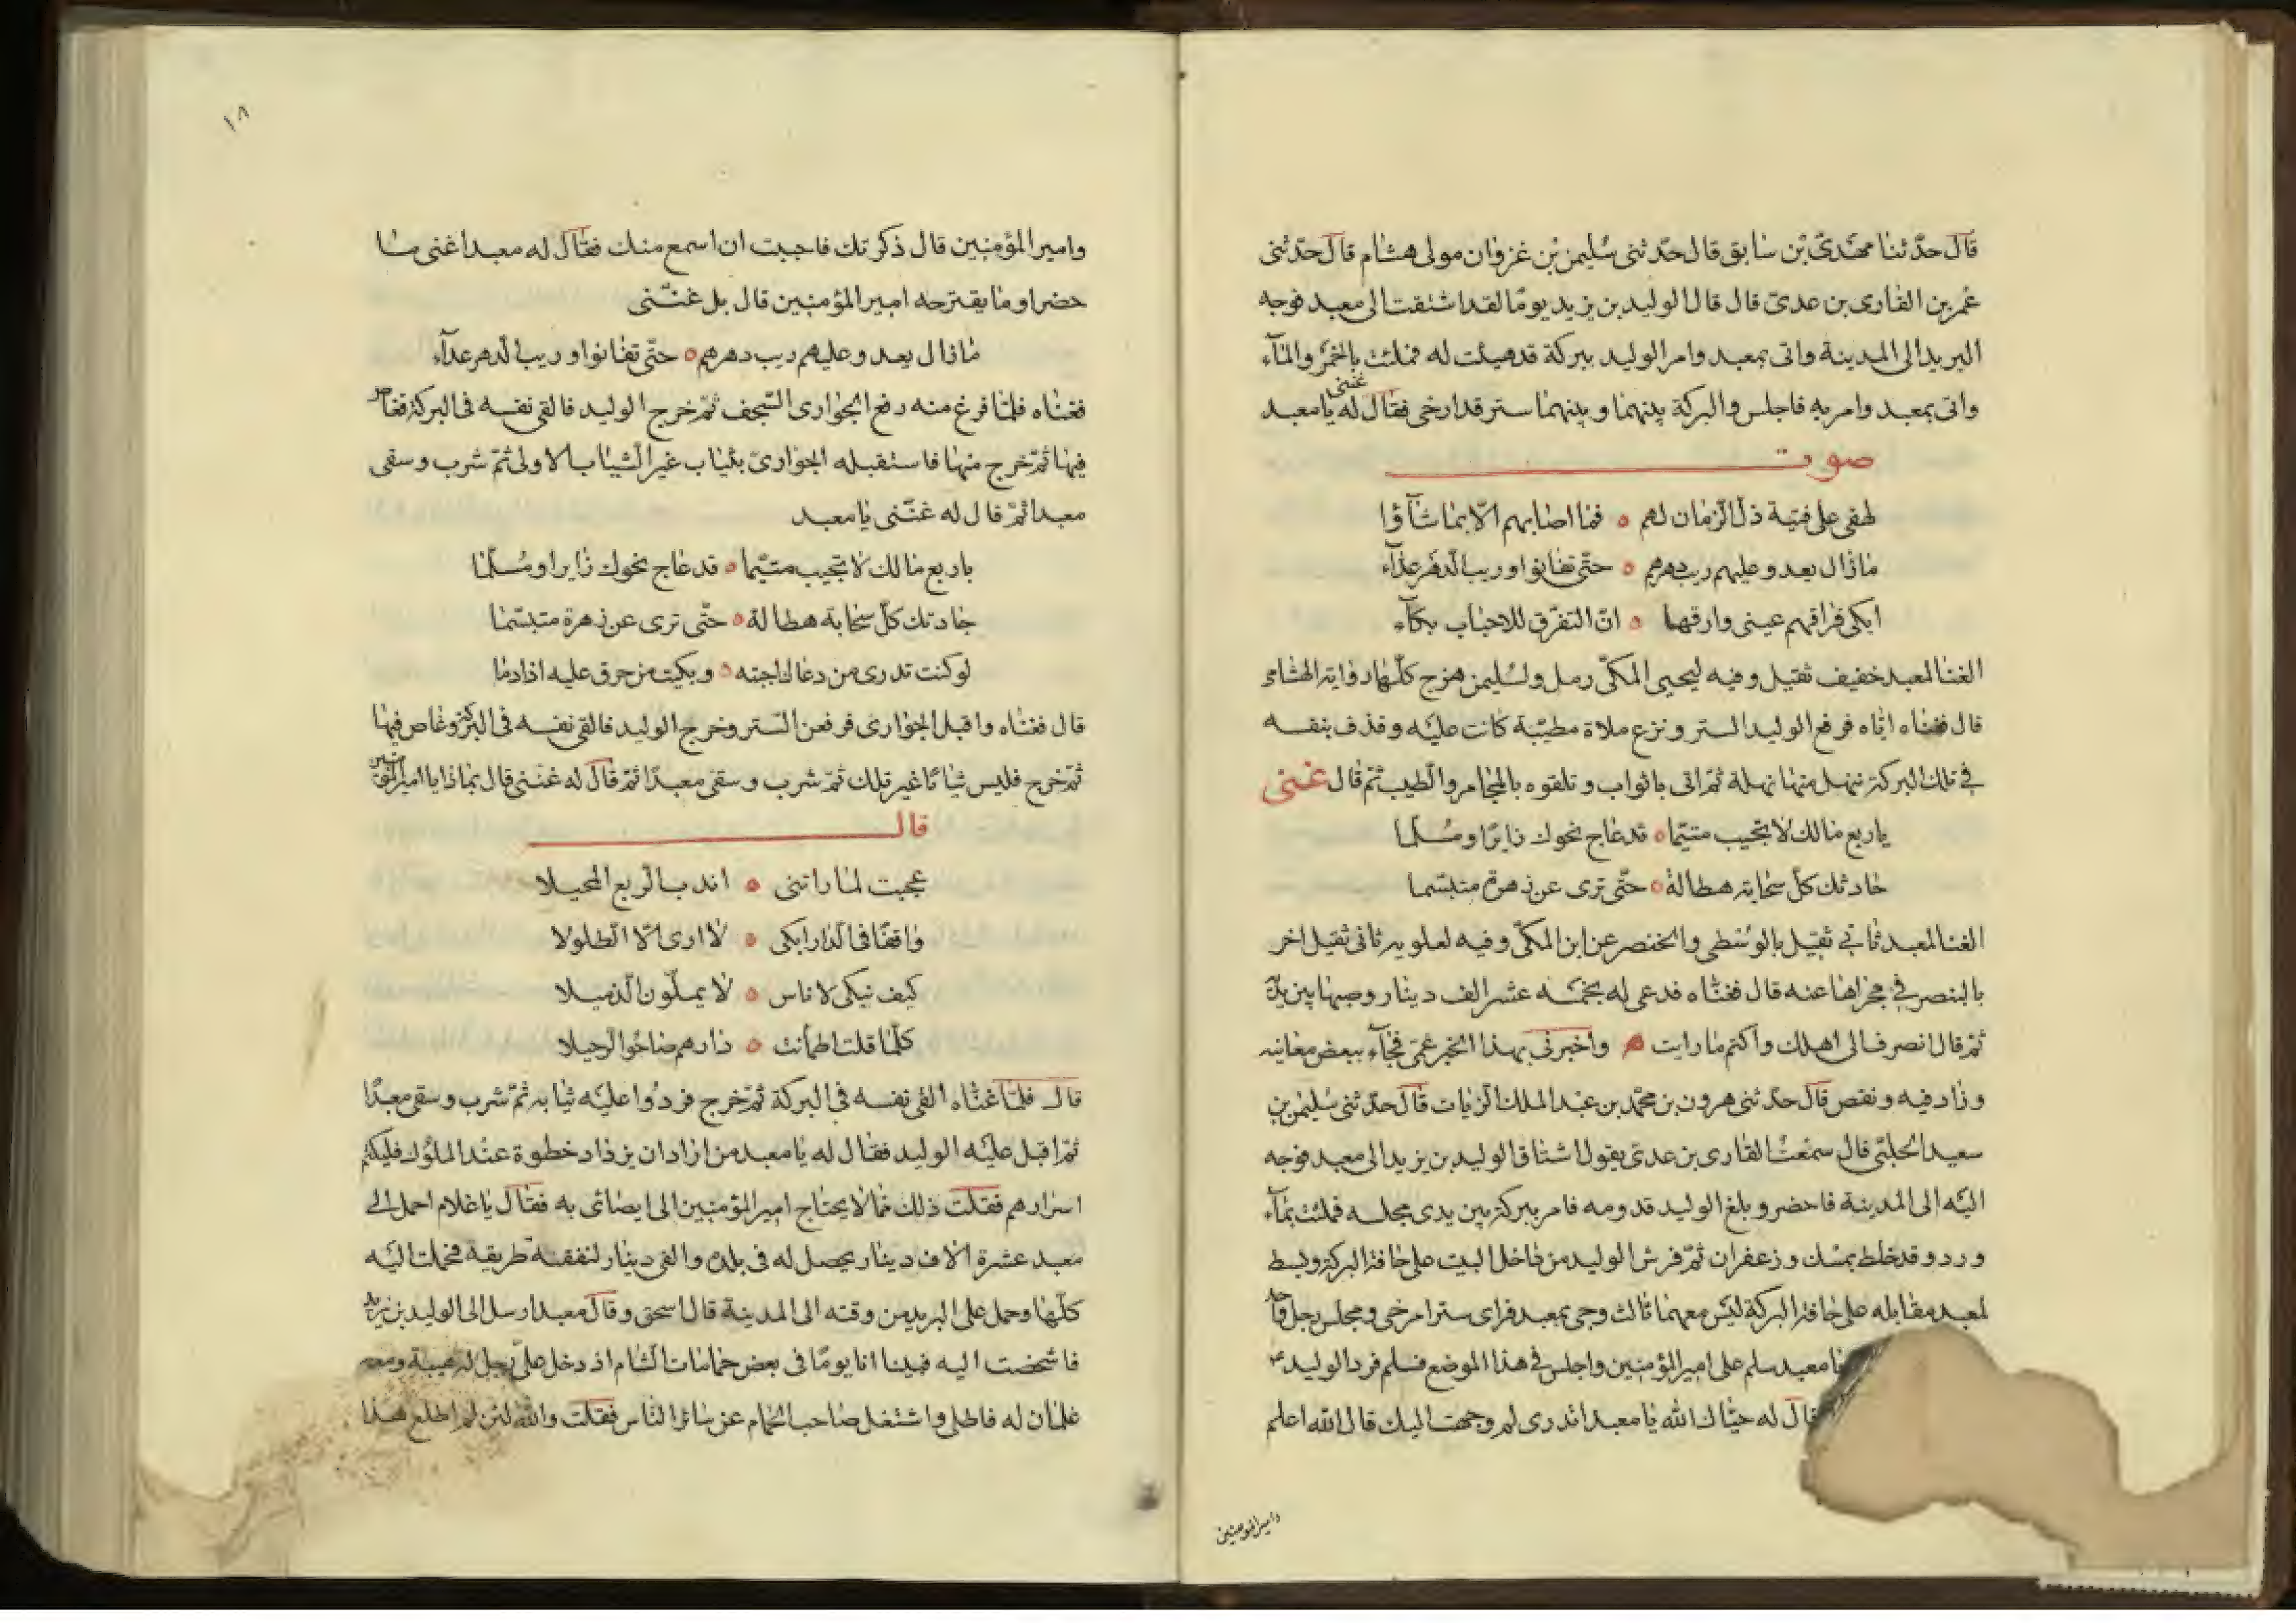 قال حدّثنا مهديّ بن سابق قال حدّثنى سُليمن بن غزوان مولى هشام قال حدّثنى
عمر بن القارى بن عدىّ قال قال الوليد بن يزيد يومًا لقد اشتقت الى معبد فوجه
البريد الى المدينة واتى بمعبد وامر الوليد ببركة قد هيئت له فملئت بالخمر والمآء
واتى بمعبد وامر به فاجلس والبركة بينهما وبينهما ستر قد ارخى فقال له غننى يا معبد
صوت
لهفى على فتية ذلّ الزمان لهم ه فما اصابهم الّا بما شآؤا
ما زال يعدو عليهم ريب دهرهم ه حتّى تفانوا وريب الدهر عدّآء
ابكى فراقهم عينى وارقها ه انّ التفرّق للاحباب بكّآء
الغنا لمعبد خفيف ثقيل وفيه ليحيى المكّى رمل ولسُليمن هزج كلّها رواية الهشامى
قال فغناه اياه فرفع الوليد الستر ونزع ملاة مطيّبة كانت عليه وقذف بنفسه
في تلك البركة فنهل منها نهلة ثمّ اتى باثواب وتلقوه بالمجامر والطيب ثمّ قال غننى
يا ربع مالك لا تجيب متيّما ه قد عاج نحوك زايرًا ومُسلّما
جادتك كلّ سحابة هطالة ه حتّى ترى عن زهرة متبسّما
الغنا لمعبد ثانى ثقيل بالوُسطى والخنصر عن ابن المكىّ وفيه لعلويه ثانى ثقيل اخر
بالبنصر في مجراها عنه قال فغنّاه فدعى له بخمسه عشر الف دينار وصبها بين يديه
ثمّ قال انصرف الى اهلك واكتم ما رايت ه واخبرنى بهذا الخبر عمّى فجآء ببعض معانيه
وزاد فيه ونقص قال حدّثنى هرون بن محمّد بن عبد الملك الزيات قال حدّثنى سُليمن بن
سعيد الحلبّى قال سمعت القارى بن عدىّ يقول اشتاق الوليد بن يزيد الى معبد فوجه
اليه الى المدينة فاحضر وبلغ الوليد قدومه فامر ببركة بين يدى مجلسه فملئت بمآء
ورد وقد خلط بمسك وزعفران ثمّ فرش الوليد من داخل البيت على حافة البركة وبسط
لمعبد مقابله على حافة البركة ليس معهما ثالث وجى بمعبد فراى سترا مرخى ومجلس رجل واحد
يا معبد سلم على امير المؤمنين واجلس في هذا الموضع فسلم فرد الوليد
قال له حيّاك الله يا معبد اتدرى لم وجهت اليك قال الله اعلم
وامير المؤمنين
١٨
وامير المؤمنين قال ذكرتك فاحببت ان اسمع منك فقال له معبد اغنى ما
حضر او ما يقترحه امير المؤمنين قال بل غنّنى
ما زال يعدو عليهم ريب دهرهم ه حتّى تفانوا وريب الدهر عدّآء
فغناه فلمّا فرغ منه رفع الجوارى السّجف ثمّ خرج الوليد فالقى نفسه فى البركة فغاص
فيها ثمّ خرج منها فاستقبله الجوارىّ بثياب غير الثياب الاولى ثمّ شرب وسقى
معبدا ثمّ قال له غنّنى يا معبد
يا ربع مالك لا تجيب متيّما ه قد عاج نحوك زايرا ومُسلّما
جادتك كلّ سحابة هطالة ه حتّى ترى عن زهرة متبسّما
لو كنت تدرى من دعاك اجبته ه وبكيت من حرق عليه اذا دما
قال فغناه واقبل الجوارى فرفعن السّتر وخرج الوليد فالقى نفسه فى البركة وغاص فيها
ثمّ خرج فلبس ثيابًا غير تلك ثمّ شرب وسقى معبدًا ثمّ قال له غنّنى قال بماذا يا امير المؤمنين
قال
عجبت لمّا راتنى ه اندب الربع المحيلا
واقفًا فى الدار ابكى ه لا ارى الّا الطلولا
كيف تبكى لاناس ه لا يملّون الذميلا
كلّما قلت اطمأنت ه دارهم صاحُوا الرحيلا
قال فلمّا غنّاه القى نفسه فى البركة ثمّ خرج فردُوا عليه ثيابه ثمّ شرب وسقى معبدًا
ثمّ اقبل عليه الوليد فقال له يا معبد من اراد ان يزداد خطوة عند الملُوك فليكتم
اسرارهم فقلت ذلك ممّا لا يحتاج امير المؤمنين الى ايصائى به فقال يا غلام احمل الى
معبد عشرة الاف دينار يحصل له فى بلده والفى دينار لنفقة طريقه فحملت اليه
كلّها وحمل على البريد من وقته الى المدينة قال اسحق وقال معبد ارسل الى الوليد بن يزيد
فاشخصت اليه فبينا انا يومًا فى بعض حمّامات الشام اذ دخل علىّ رجل له هيبة ومعه
غلمان له فاطلى واشتغل صاحب الحمّام عن سائر الناس فقلت والله لئن لم اطلع هذا